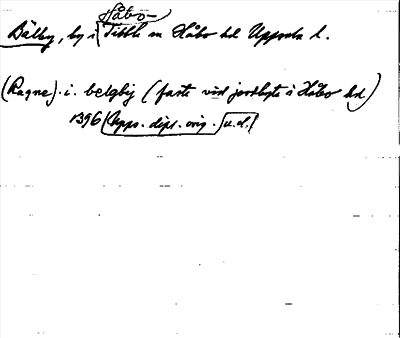 Håbo-
Bälby, by i Tibble sn Håbo hd Uppsala l.
(Ragne) . i . belgby (faste vid jordbyte i Håbo hd)
1396 Upps. dipl. orig. u.d.